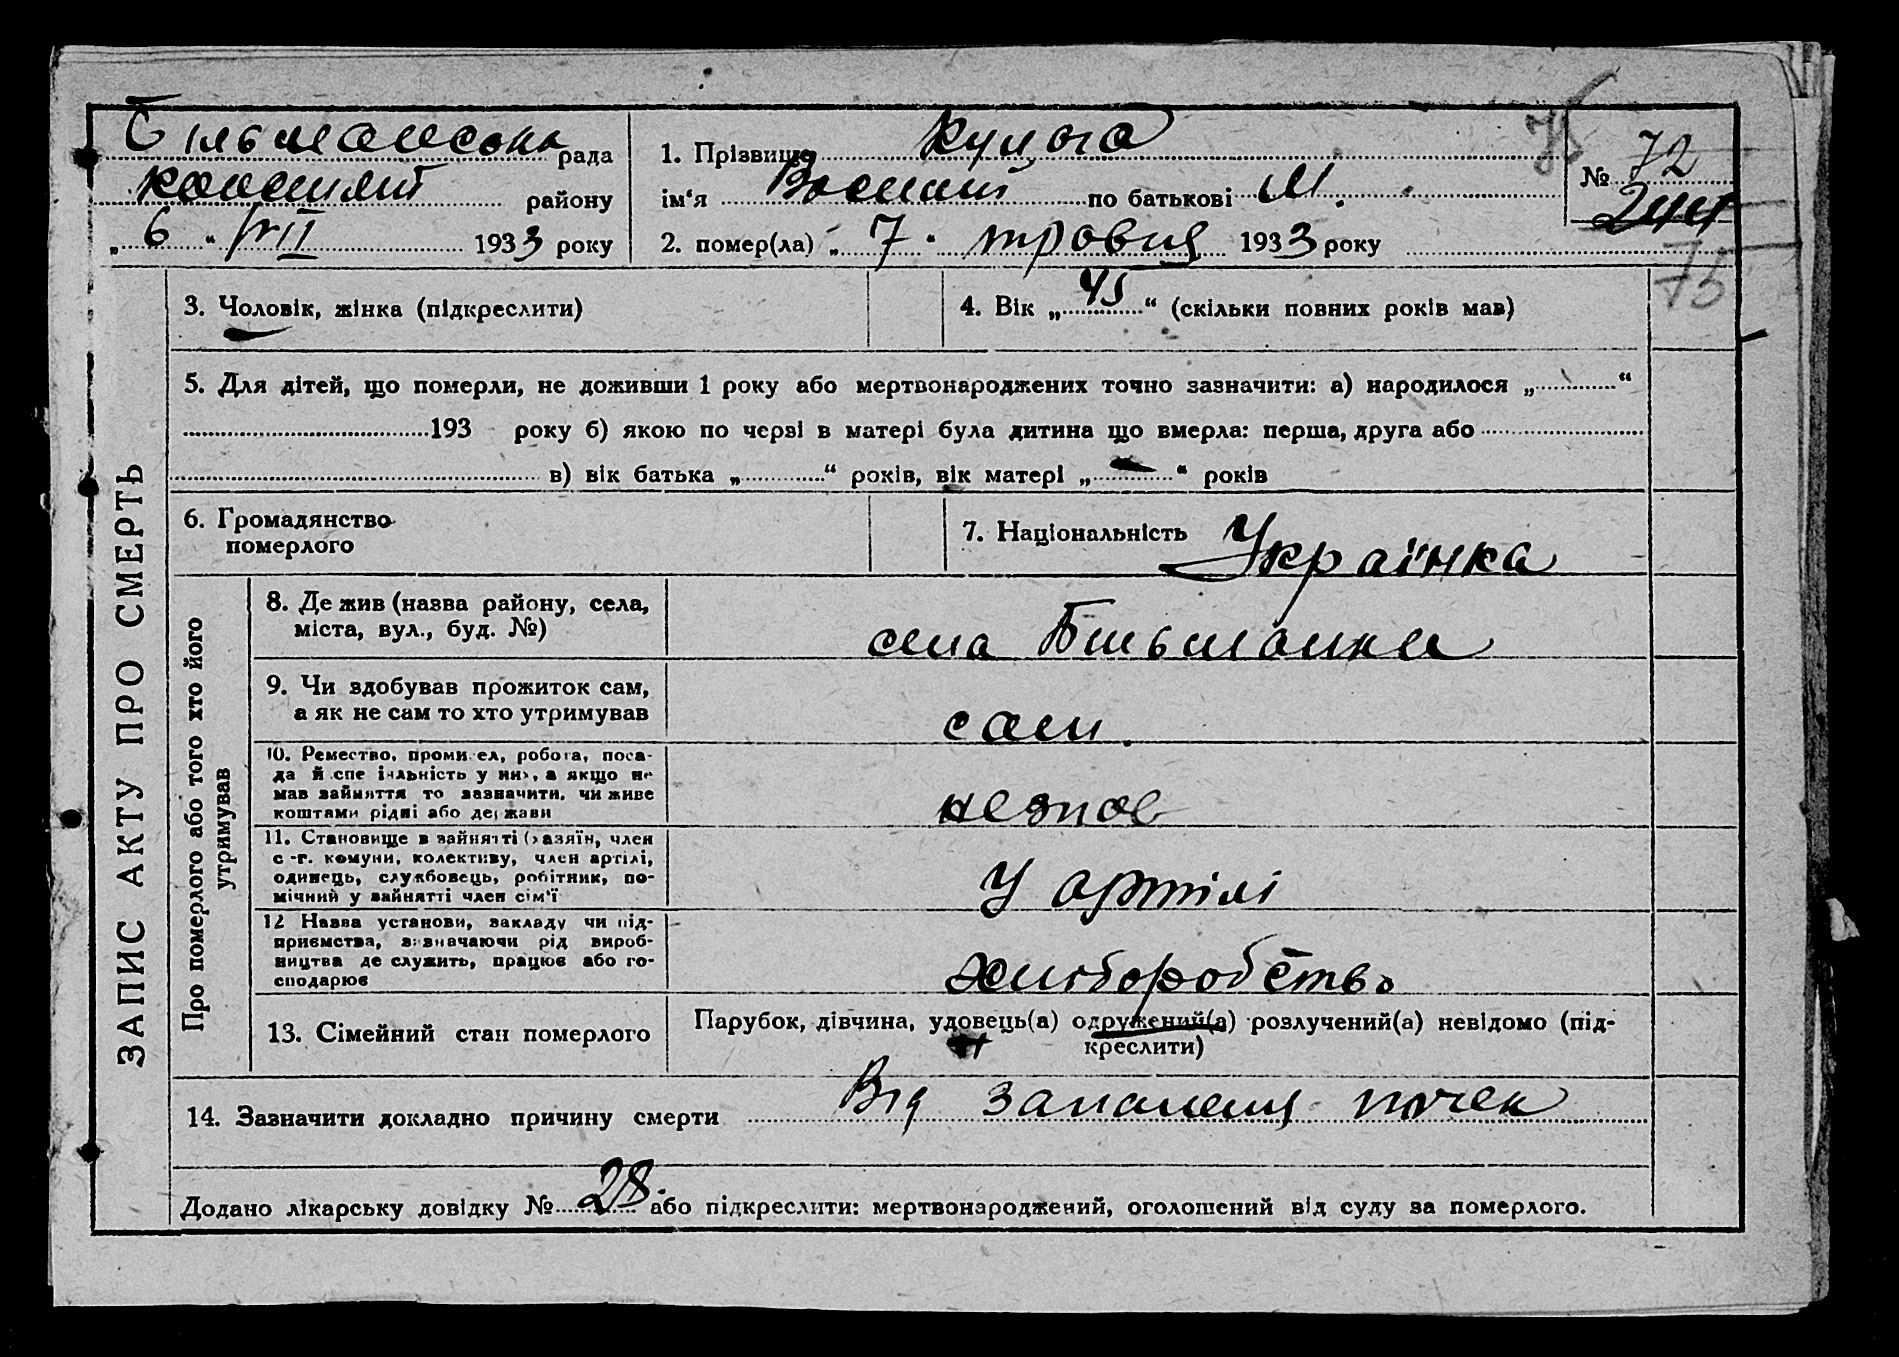 75
Більманська рада
району
„ 6 “ VII 1933 року
1. Прізвище Кулага
ім‘я Василий по батькові М.
2. помер(ла) „ 7 “ травця 1933 року
№ 72
244
75
ЗАПИС АКТУ ПРО СМЕРТЬ
3. Чоловік, жінка (підкреслити)
4. Вік „ 45 “ (скільки повних років мав)
5. Для дітей, що померли, не доживши 1 року або мертвонароджених точно зазначити: а) народилося „ “
193 року б) якою по черзі в матері була дитина що вмерла: перша, друга або
в) вік батька „ “ років, вік матері „ “ років
6. Громадянство
померлого
7. Національність Українка
Про померлого або того хто його
утримував
8. Де жив (назва району, села,
міста, вул., буд. №)
села Більманки
9. Чи здобував прожиток сам,
а як не сам то хто утримував
сам.
10. Ремество, промисел, робота, поса-
да й спеціяльність у них, а якщо не
мав зайняття то зазначити, чи живе
коштами рідні або держави
11. Становище в зайнятті (хазяїн, член
с.-г. комуни, колективу, член артілі,
одинець, службовець, робітник, по-
мічний у зайнятті член сім‘ї
У артілі
12 Назва установи, закладу чи під-
приємства, визначаючи рід вироб-
ництва де служить, працює або го-
сподарює
хлиборобство
13. Сімейний стан померлого
Парубок, дівчина, удовець(а) одружений(а) розлучений(а) невідомо (під-
креслити)
14. Зазначити докладно причину смерти Від запаленя почек
Додано лікарську довідку № 28. або підкреслити: мертвонароджений, оголошений від суду за померлого.